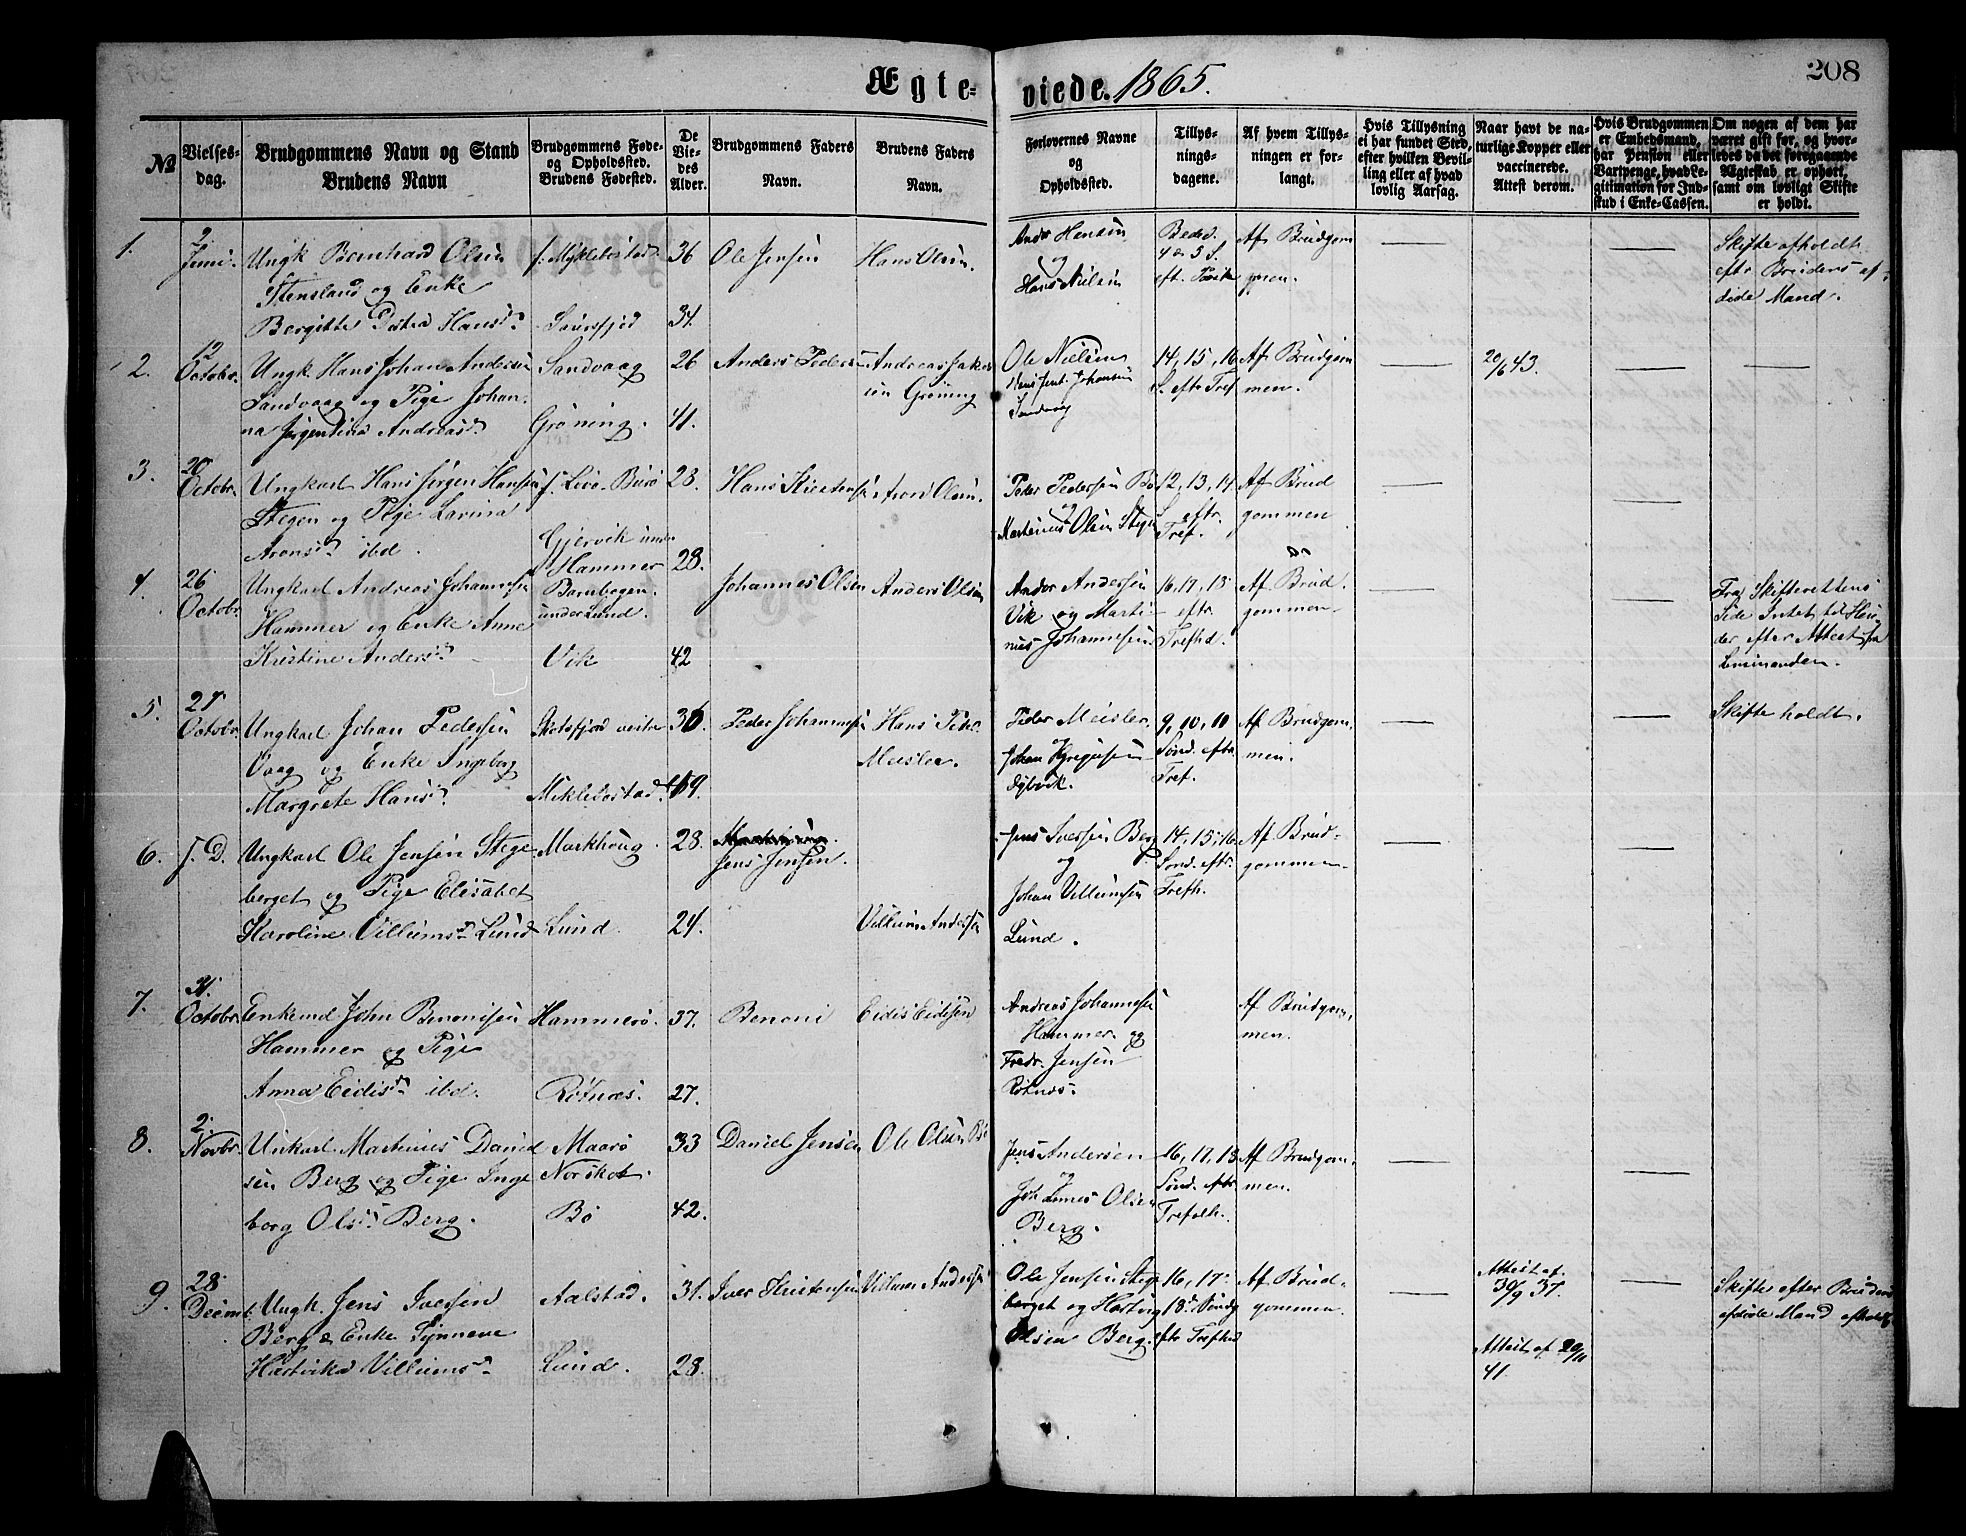 Ægte-
viede. 1865.
208
№
Vielses-
dag.
Brudgommens Navn og Stand
Brudens Navn
Brudgommens Føde-
og Opholdssted.
Brudens Fødested.
De
Vie-
des
Alder.
Brudgommens Faders
Navn.
Brudens Faders
Navn.
Forlovernes Navne
og
Opholdssted.
Tillys-
nings-
dagene.
Af hvem Tillys-
ningen er for-
langt.
Hvis Tillysning
ei har fundet Sted,
efter hvilken Bevil-
ling eller af hvad
lovlig Aarsag.
Naar havt de na-
turlige Kopper eller
vaccinerede.
Attest derom.
Hvis Brudgommen
er Embedsmand,
har Pension eller
Vartpenge, hvad Le-
gitimation for Ind-
skud i Enke-Cassen.
Om nogen af dem har
været gift før, og hvor-
ledes da det foregaaende
Ægteskab er ophørt,
samt om lovligt Skifte
er holdt.
1.
2
Juni.
Ungk Bernhard Olsen
Stensland og Enke
Bergitte Hansd.
f. Myklebostad
36
34.
Ole Jensen
Hans Olsen.
Andr Hansen
og
Hans Nielsen
4 & 5 S.
eft.
Af Brudgom
men.
Skifte afholdt
eftr Brudens af-
døde Mand.
2.
12
Octobr.
Ungk. Hans Johan Andersen
Sandvaag og Pige Johan-
na Jørgentine Andreasd.
Sandvaag
Grøning.
26
41.
Anders Pedersen
Andreas Jakob
sen Grøning
Ole Nielsen
Johansen
Sandvaag
14, 15, 16
S. eftr Tref
Af Brudgom
men.
20/6 43.
3.
20
Octobr.
Ungkarl Hans Jørgen Hansen
Stegen og Pige Larina
Aronsd. ibd.
f. Levø Burø
Gjervik under
Hammer
28.
28.
Hans Kristensen
Aron Olsen.
Peder Pedersen Bø
og
Martinus Olsen Stegen
12, 13, 14
S eftr.
Tref.
Af Brud
gommen
4.
26
Octobr.
Ungkarl Andreas Johannesen
Hammer og Enke Anne
Kristine Andersd.
Barnbogen
under Lund.
Vik
42
Johannes Olsen
Anders Olsen
Ander Andersen
Vik og Marti-
nus Johannesen.
16, 17, 18
eftr
Trefhd.
Af Brud.
gommen.
Fra Skifterettens
Side Intet til Hin-
der efter Attest fra
Lensmanden.
5.
27
Octobr.
Ungkarl Johan Pedersen
Vaag og Enke Ingeborg
Margrete Hansd.
Skotsfjord vestre
Miklebostad
36.
49.
Peder Johannesen
Hans Peder
Meisler.
Peder Meisler.
og
Johan Gregusen
Dybvik.
9, 10, 11
Sønd. eftr
Tref.
Af Brudgom.
men.
Skifte holdt.
6.
s. D.
Ungkarl Ole Jensen Stege
berget og Pige Elisabet
Karoline Villumsd. Lund
Markhoug.
Lund.
28.
24.
Jens Jensen.
Villum Andersen
Jens Iversen Berg
og
Johan Villumsen
Lund.
14, 15, 16
Sønd. eftr
Trefh.
Af Brud-
gommen.
7.
31.
Octobr.
Enkemd. John Benonisen
Hammer og Pige
Anna Eidisd. ibd.
Hammerø.
Røtnæs.
37.
27.
Benoni
Eidis Eidisen
Andreas Johannesen
Hammer og
Fredr. Jensen
Røtnæs.
Af Brudgom.
men.
8.
2.
Novbr.
Unkarl Martinus Daniel
sen Berg og Pige Inge
borg Olsd. Berg.
Maarø
Norskot.
Bø
33
42.
Daniel Jensen
Ole Olsen Bø
Jens Andersen
og
Johannes Olsen
Berg.
16, 17, 18
Sønd. eftr
Trefolh.
Af Brudgom.
men.
9.
28
Decmb.
Ungk. Jens Iversen
Berg & Enke Synneve
Hartvika Villumsd.
Aalstad.
Lund.
31.
28.
Iver Kristensen
Villum Andersen
Ole Jensen Stege
berget og Hartvig
Olsen Berg.
16, 17.
18d. Sønd
eftr Trefhd
Af Brud-
gommen.
Attest af.
30/9 37.
Attest af 29/11
41.
Skifte efter Brudens
afdøde Mand afholdt